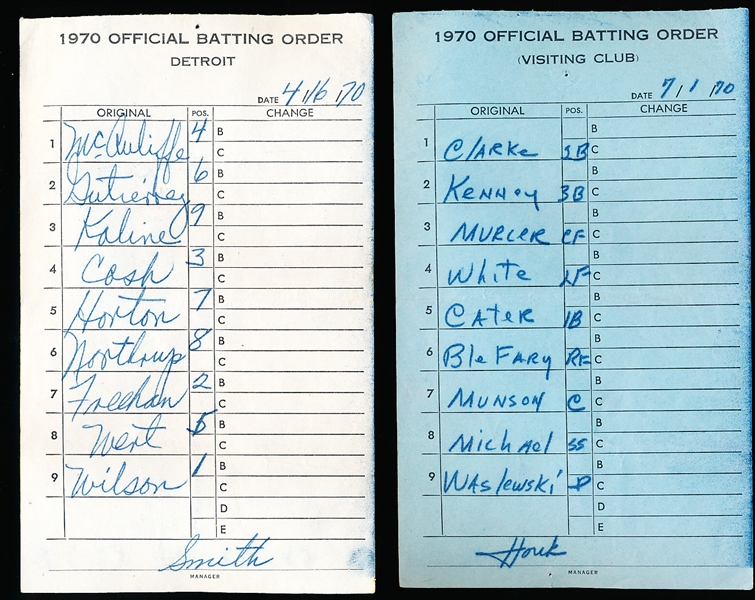 1970 OFFICIAL BATTING ORDER
DETROIT
DATE 4/16/70
ORIGINAL POS. CHANGE
1 McAuliffe 4 B
C
2 Gutierrez 6 B
C
3 Kaline 9 B
C
4 Cash 3 B
C
5 Horton 7 B
C
6 Northrup 8 B
C
7 Freehan 2 B
C
8 Wert 5 B
C
9 Wilson 1 B
C
D
E
Smith
MANAGER
1970 OFFICIAL BATTING ORDER
(VISITING CLUB)
DATE 7/1/70
ORIGINAL POS. CHANGE
B
1 Clarke 2B C
B
2 Kenney 3B C
B
3 Murcer CF C
B
4 White LF C
B
5 Cater 1B C
B
6 Blefary RF C
B
7 Munson C C
B
8 Michael SS C
B
9 Waslewski P C
D
E
Houk
MANAGER